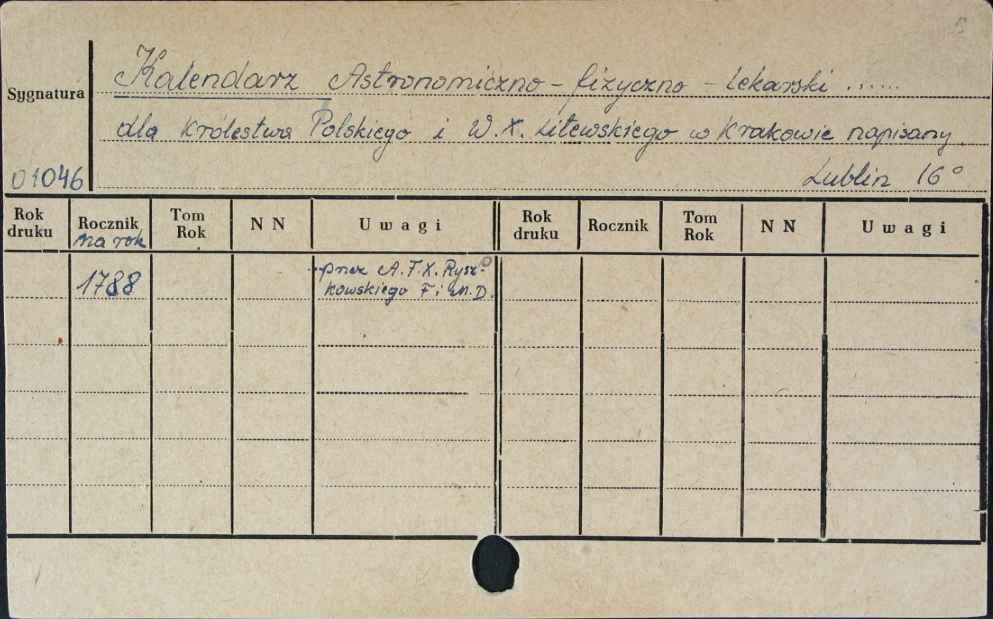 Kalendarz Astronomiczno - fizyczno - lekarski ......
Sygnatura
dla Królestwa Polskiego i W. X. Litewskiego w Krakowie napisany.
01046
Lublin 16°
Rok druku
Rocznik
na rok
Tom Rok
N N
Uwagi
Rok druku
Rocznik
Tom Rok
N N
Uwagi
1788
przez A. F. X. Rysz-
kowskiego F. i M. D.